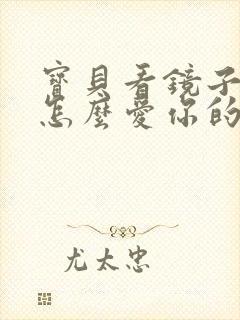 寶貝看鏡子
怎麼愛你的
尤太忠